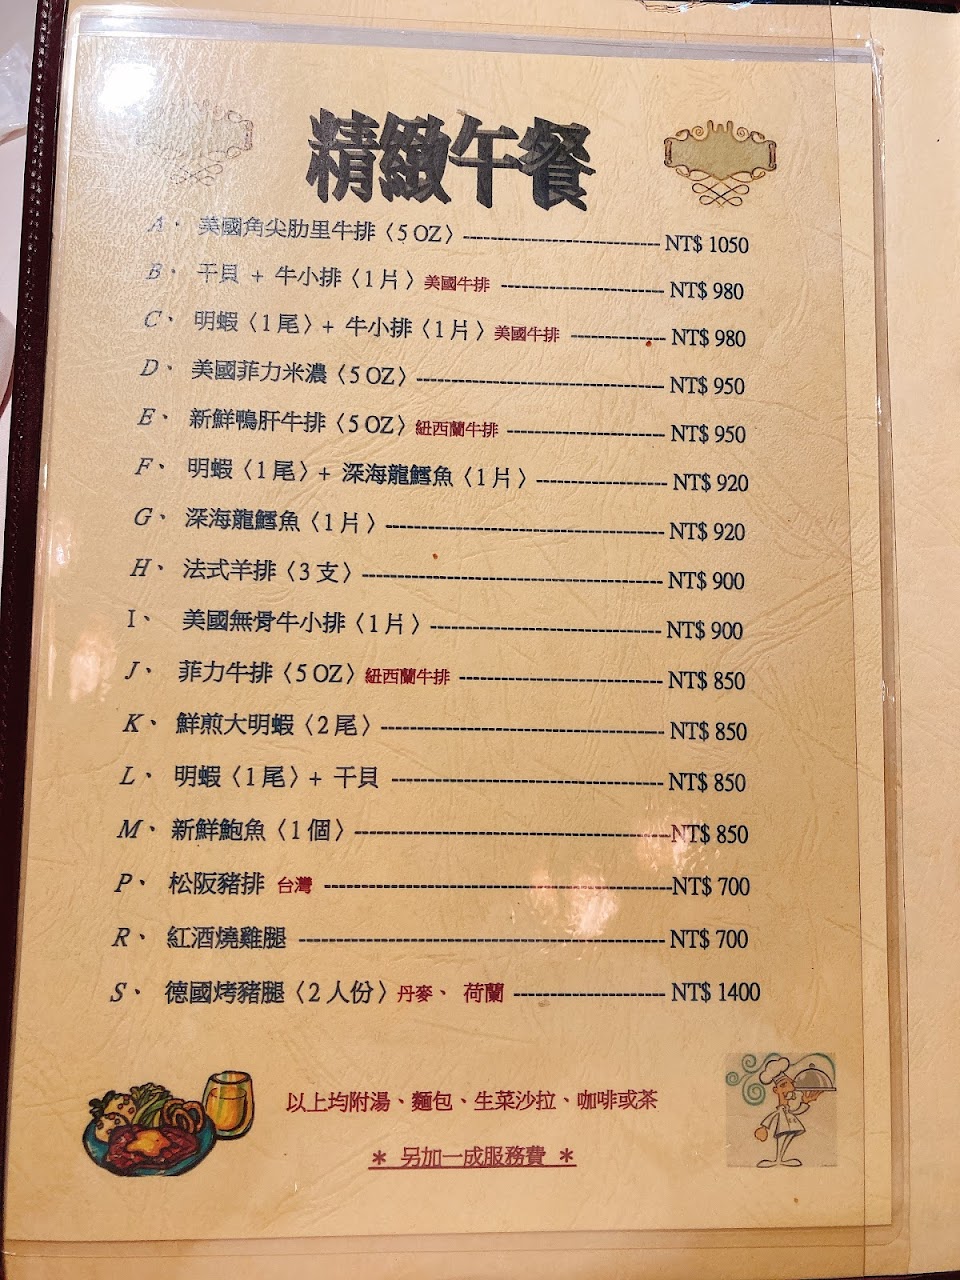 精緻午餐
A、 美國角尖肋里牛排〈5 OZ〉------------------------------ NT$ 1050
B、 干貝 + 牛小排〈1 片〉美國牛排 ------------------------- NT$ 980
C、 明蝦〈1 尾〉+ 牛小排〈1 片〉美國牛排 --------------- NT$ 980
D、 美國菲力米濃〈5 OZ〉-------------------------------------- NT$ 950
E、 新鮮鴨肝牛排〈5 OZ〉紐西蘭牛排 ------------------------ NT$ 950
F、 明蝦〈1 尾〉+ 深海龍鱈魚〈1 片〉-------------------- NT$ 920
G、 深海龍鱈魚〈1 片〉------------------------------------------- NT$ 920
H、 法式羊排〈3 支〉---------------------------------------------- NT$ 900
I、 美國無骨牛小排〈1 片〉----------------------------------- NT$ 900
J、 菲力牛排〈5 OZ〉紐西蘭牛排 ------------------------------- NT$ 850
K、 鮮煎大明蝦〈2 尾〉------------------------------------------- NT$ 850
L、 明蝦〈1 尾〉+ 干貝 ----------------------------------------- NT$ 850
M、 新鮮鮑魚〈1 個〉------------------------------------------------NT$ 850
P、 松阪豬排 台灣 -----------------------------------------------------NT$ 700
R、 紅酒燒雞腿 ------------------------------------------------------- NT$ 700
S、 德國烤豬腿〈2 人份〉丹麥、 荷蘭 ----------------------- NT$ 1400
以上均附湯、麵包、生菜沙拉、咖啡或茶
* 另加一成服務費 *